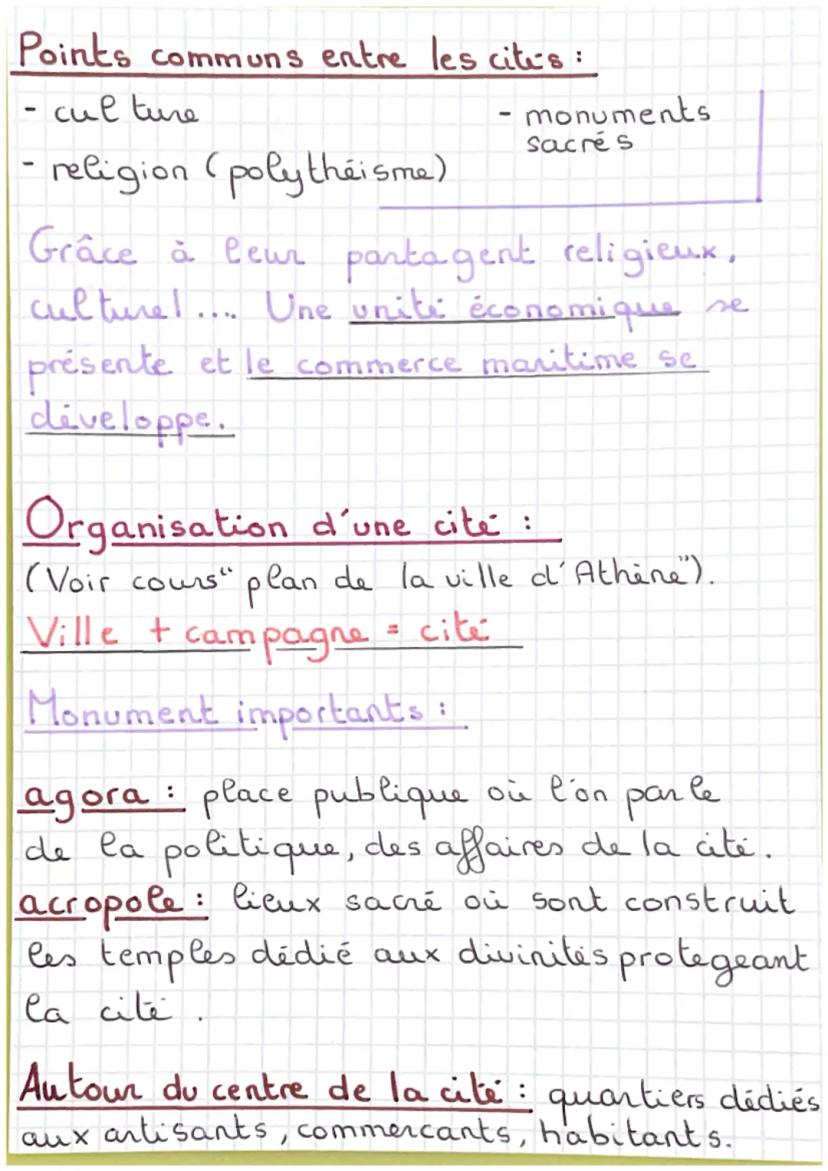 Points communs entre les cités :
- culture
- religion (polythéisme)
- monuments
sacrés
Grâce à leur partagent religieux,
culturel .... Une unité économique se
présente et le commerce maritime se
développe.
Organisation d'une cité :
(Voir cours " plan de la ville d'Athène").
Ville + campagne = cité
Monument importants :
agora : place publique où l'on parle
de la politique, des affaires de la cité.
acropole : lieux sacré où sont construit
les temples dédié aux divinités protegeant
la cité .
Autour du centre de la cité : quartiers dédiés
aux artisants, commercants, habitants.